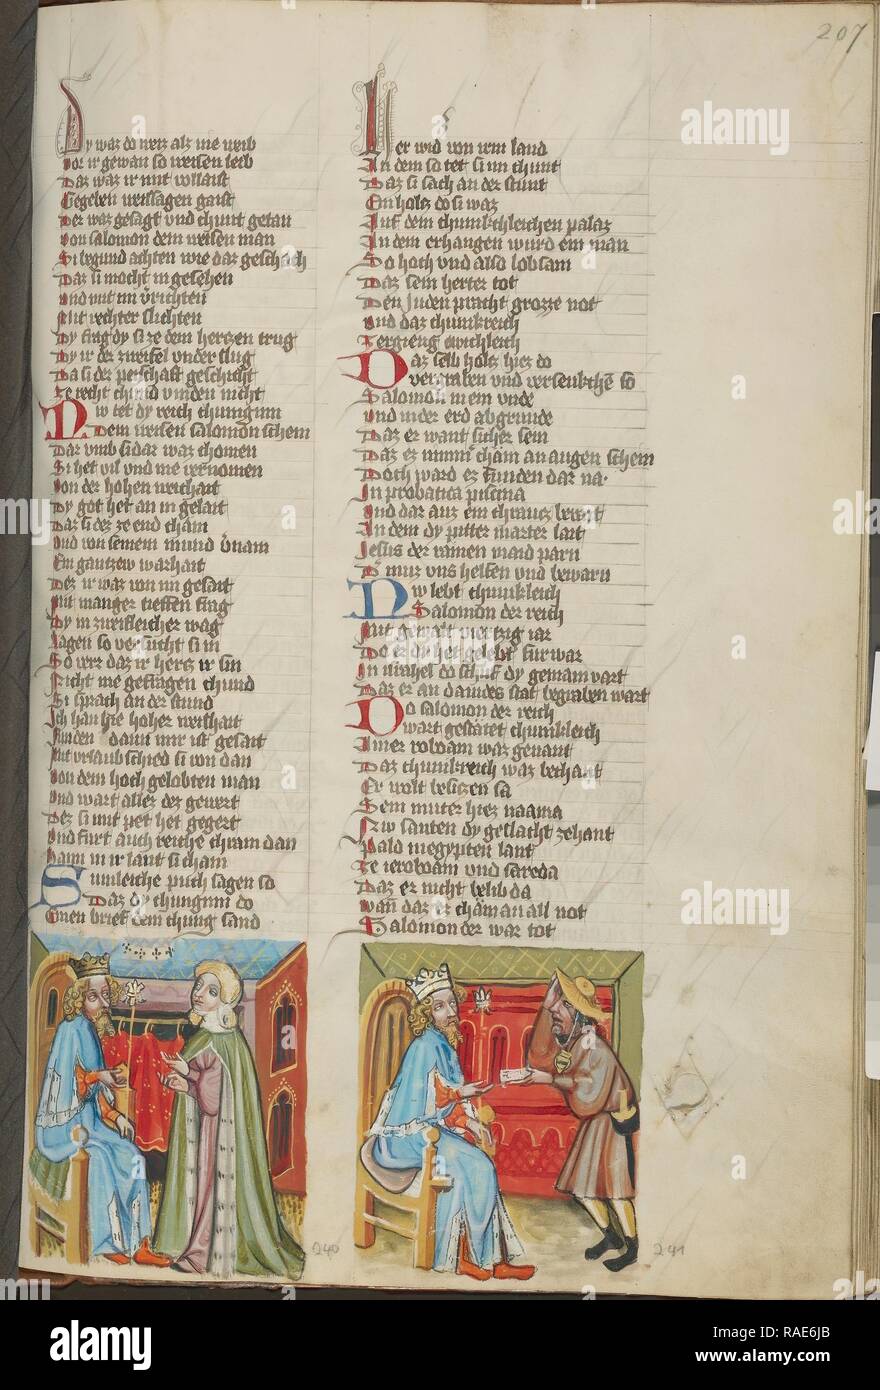 207
Dy waz do nerz alz nie weib
vor ir gewan so weisen leib
Daz waz ir mit vollaist
Gegeben weissagen gaist
Der waz gesagt vnd chunt getan
von salomon dem weisen man
Si begund achten wie daz geschach
Daz si mocht in gesehen
vnd mit im
Mit rechter slichten
Dy frag dy si ze dem hertzen trug
Dy ir der zweifel vnder slug
Da si der geschicht
Ze recht chund vinden nicht
Nw tet dy reich chunginn
Dem weisen salomon schein
Dar vmb si dar waz chomen
Si het vil vnd me vernomen
von der hohen weishait
Dy got het an in gelait
Daz si dez ze end cham
vnd von seinem mund vernam
Ein gantzew warhait
Dez ir waz von im gesait
Mit manger tieffen frag
Dy in zweifleicher wag
sagen so versucht si in
So verr daz ir hertz ir sin
Nicht me gefragen chund
Si sprach an der stund
Ich han hie hoher weishait
funden dann mir ist gesait
Mit vrlaub schied si von dan
von dem hoch gelobten man
vnd wart allez dez gewert
Dez si mit pet het gegert
vnd furt auch reiche chram dan
haim in ir lant si cham
Sumleiche puch sagen so
Daz dy chunginn do
Einen brief dem chung sand
Her wid von irm land
In dem so tet si im chunt
Daz si sach an der stunt
Ein holtz do si waz
Auf dem chunkchleichen palaz
In dem erhangen wurd ein man
So hoch vnd also lobsam
Daz sein herter tot
Den Juden pracht grozze not
vnd daz chunkreich
Zergieng ewichleich
Daz selb holtz hiez do
vergraben vnd versenkchen so
Salomon in ein vnde
vnd in der erd abgrunde
Daz er want sicher sein
Daz ez nimmer cham an augen schein
Doch ward ez funden dar na
In probatica piscina
vnd dar auz ein chrautz berait
An dem dy pitter marter lait
Jesus der rainen maid parn
Der muz vns helfen vnd bewarn
Nw lebt chunkleich
Salomon der reich
Mit gewalt viertzig iar
Do er do het gelebt fur war
In israhel do schuf dy gemain vart
Daz er an dauides stat begraben wart
Do salomon der reich
wart gestatet chunkleich
Ainer roboam waz genant
Daz chunkreich waz bechant
Er wolt besitzen sa
Sein muter hiez naama
Nw santen dy geslacht zehant
Pald in egypten lant
Ze ieroboam vnd sareda
Daz er nicht belib da
wann daz er cham an all not
Salomon der war tot
240
241
alamy
Image ID: RAE6JB
www.alamy.com